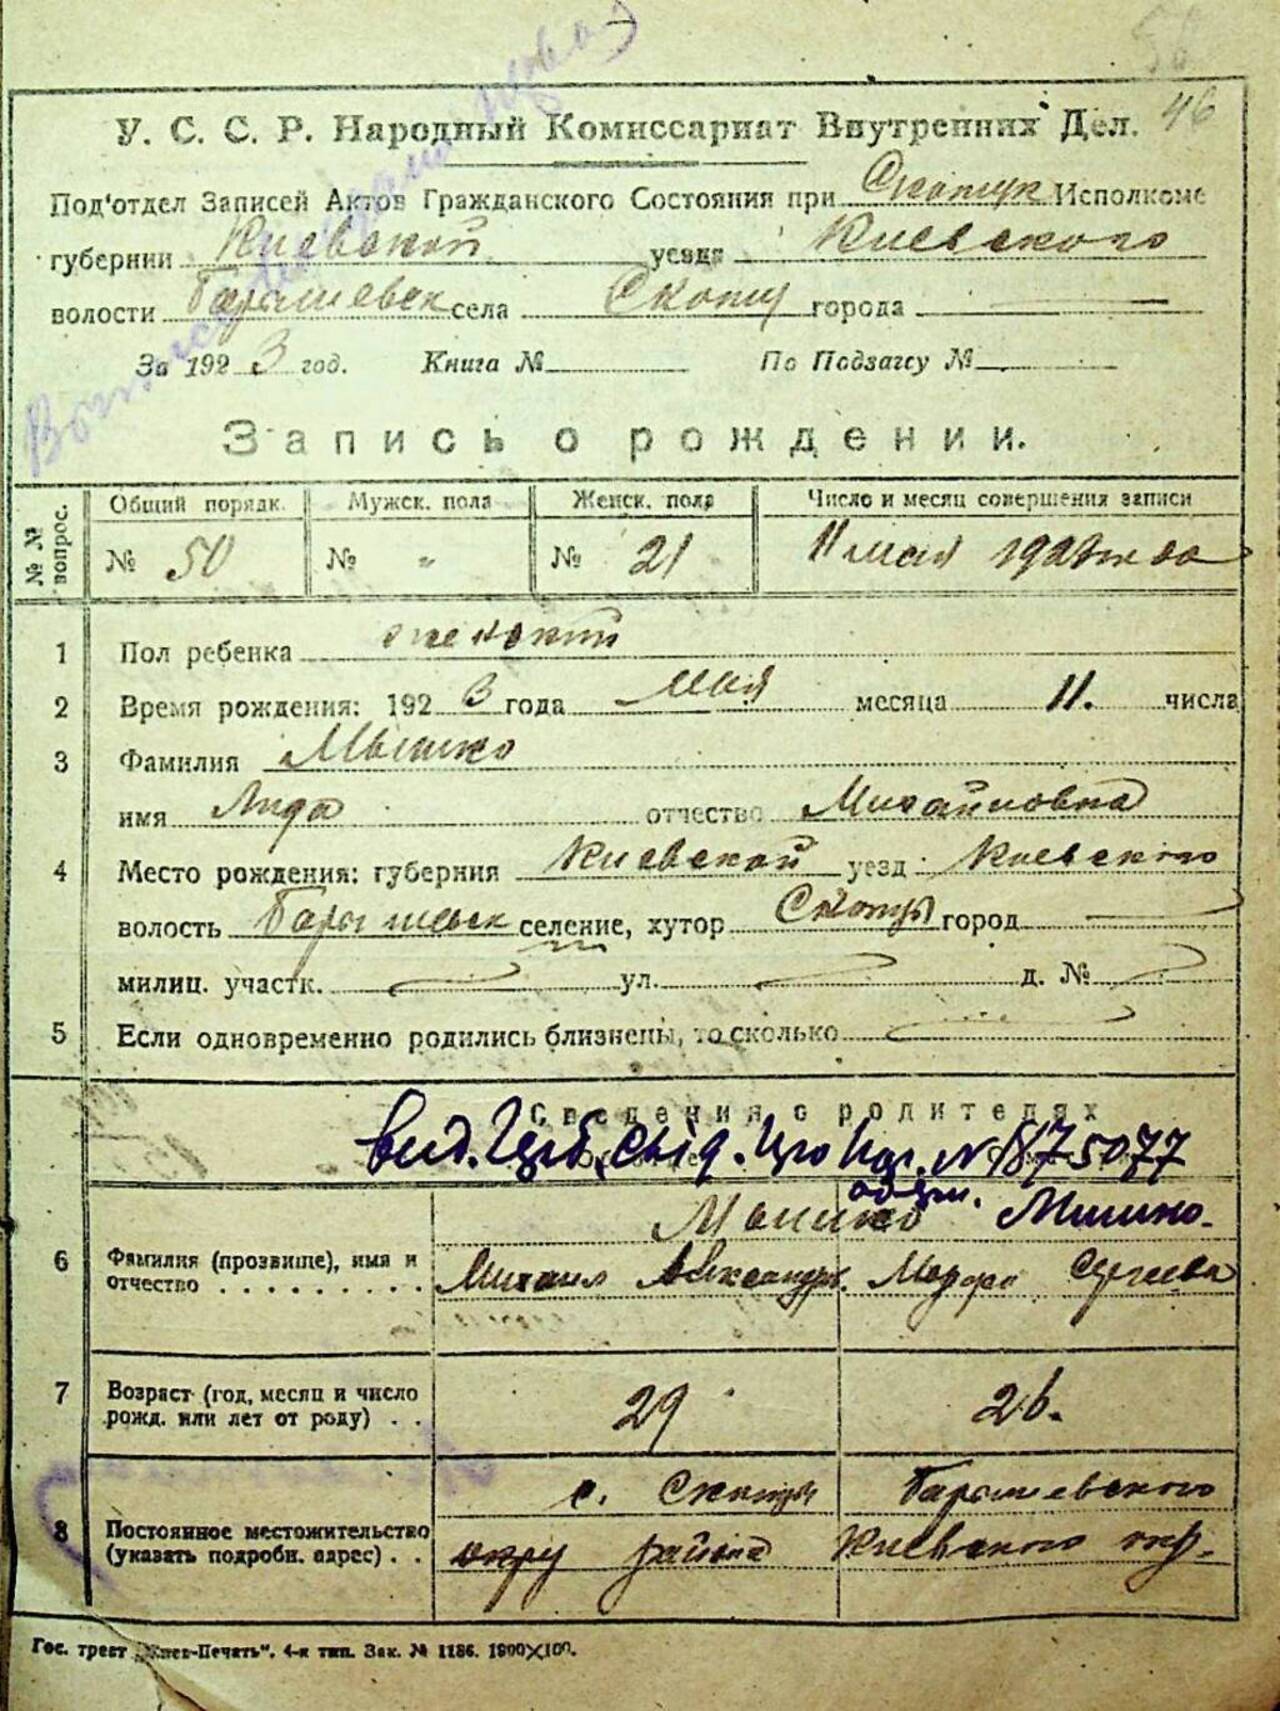 46
У. С. С. Р. Народный Комиссариат Внутренних Дел.
Под'отдел Записей Актов Гражданского Состояния при Скопцк Исполкоме
губернии Киевской уезда Киевского
волости Барышевск села Скопцы города
За 1923 год. Книга № По Подзагсу №
Запись о рождении.
№№ вопрос. Общий порядк. Мужск. пола Женск. пола Число и месяц совершения записи
№ 50 № " № 21 11 мая
1 Пол ребенка женский
2 Время рождения: 1923 года мая месяца 11. числа
3 Фамилия Мышко
имя Лида отчество Михайловна
4 Место рождения: губерния Киевской уезд Киевского
волость Барышевск селение, хутор Скопцы город
милиц. участк. ул. д. №
5 Если одновременно родились близнецы, то сколько
Сведения о родителях
вид. свід. № 1875077
Мышко Мишко.
6 Фамилия (прозвище), имя и
отчество Михаил Александр. Сергеева
7 Возраст (год, месяц и число
рожд. или лет от роду) 29 26.
с. Скопцы Барышевского
8 Постоянное местожительство
(указать подробн. адрес) района Киевского окр.
Гос. трест „Киев-Печать". 4-я тип. Зак. № 1186. 1900X100.